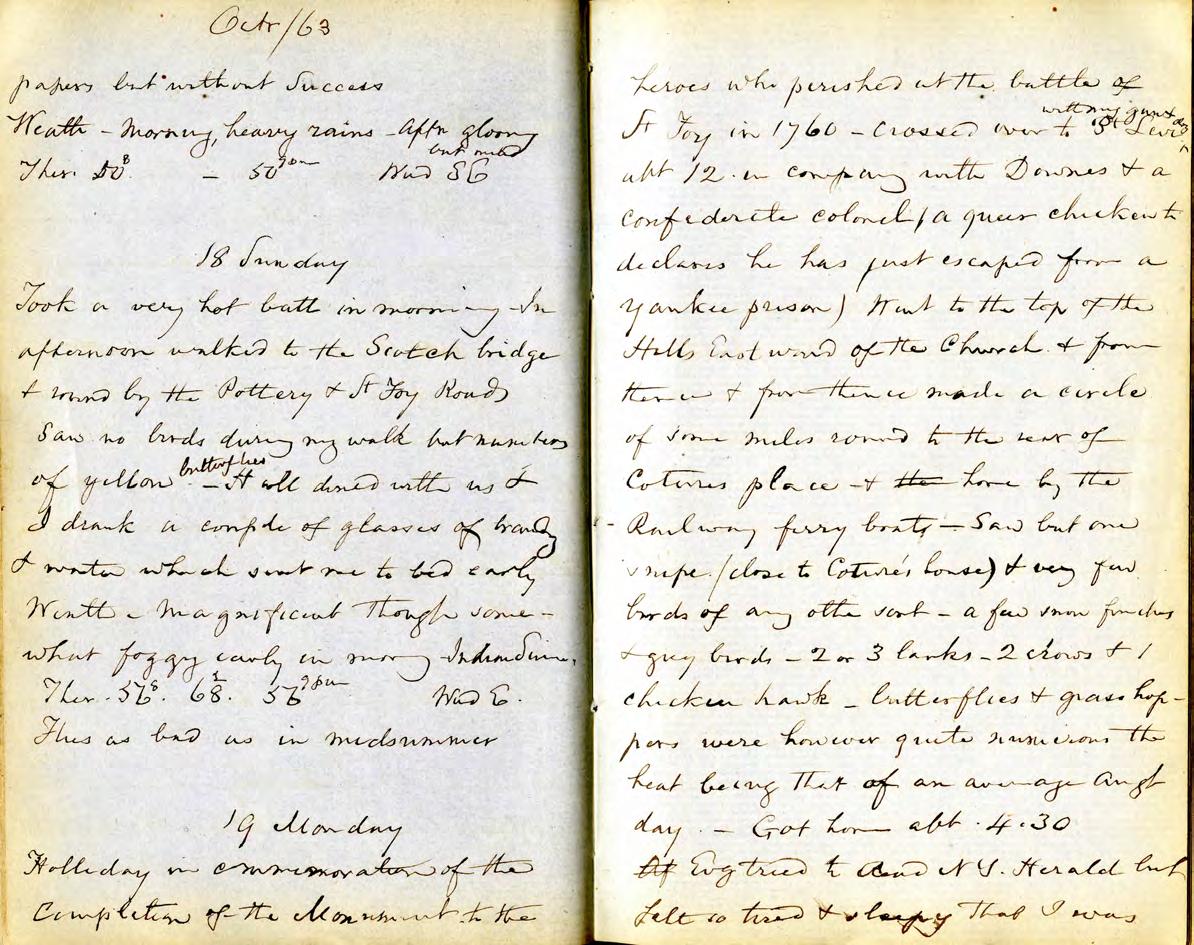 Octr/63
papers but without Success
Weath - morning, heavy rains - Aftn gloomy
but mild
Ther. 50 8. - 50 9pm Wind SE
18 Sunday
Took a very hot bath in morning - In
afternoon walked to the Scotch bridge
& round by the Pottery & St Foy Roads
Saw no birds during my walk but numbers
of yellow butterflies - all dined with us &
I drank a couple of glasses of brandy
& water which sent me to bed early
Weath - Magnificent though some-
what foggy early in morng - Indian
Ther. 56 8. 68. 56 9pm Wind E.
Flies as bad as in midsummer
19 Monday
Holliday in commemoration of the
Completion of the Monument to the
heroes who perished at the battle of
with my gun &
St Foy in 1760 - crossed over to Levi
abt 12. in company with Downes & a
confederate colonel (a queer chicken
declares he has just escaped from a
Yankee prison) Went to the top of the
Hills Eastward of the Church & from
thence & from thence made a circle
of some miles round to the rear of
Cotures place - & the home by the
Railway ferry boats - Saw but one
snipe (close to Coture's house) & very few
birds of any othe sort - a few snow finches
& grey birds - 2 or 3 larks - 2 crows & 1
chicken hawk - butterflies & grasshop-
pers were however quite numerous the
heat being that of an average Augt
day. - Got home abt 4.30
Evg tried to read N Y. Herald but
felt so tired & sleepy that I was